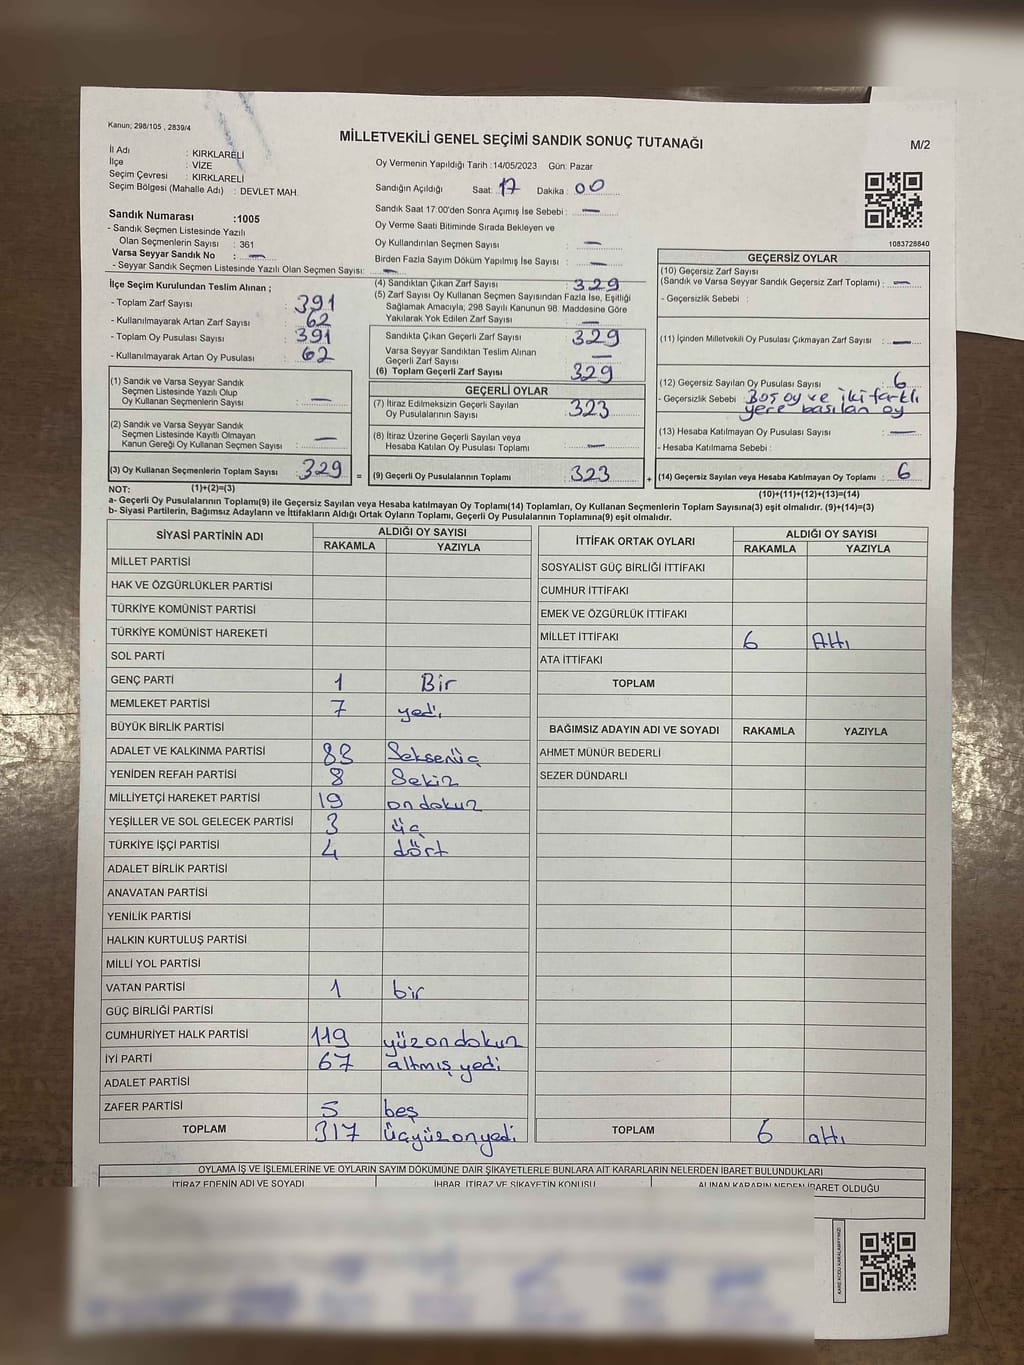 Kanun; 298/105 , 2839/4
MİLLETVEKİLİ GENEL SEÇİMİ SANDIK SONUÇ TUTANAĞI
M/2
İl Adı : KIRKLARELİ
İlçe : VİZE
Seçim Çevresi : KIRKLARELİ
Seçim Bölgesi (Mahalle Adı) : DEVLET MAH.
Oy Vermenin Yapıldığı Tarih : 14/05/2023 Gün: Pazar
Sandığın Açıldığı Saat: 17 Dakika : 00
Sandık Saat 17:00'den Sonra Açımış İse Sebebi : —
Oy Verme Saati Bitiminde Sırada Bekleyen ve
Oy Kullandırılan Seçmen Sayısı : —
Birden Fazla Sayım Döküm Yapılmış İse Sayısı : —
Sandık Numarası :1005
- Sandık Seçmen Listesinde Yazılı
Olan Seçmenlerin Sayısı : 361
Varsa Seyyar Sandık No : —
- Seyyar Sandık Seçmen Listesinde Yazılı Olan Seçmen Sayısı: —
1083728840
İlçe Seçim Kurulundan Teslim Alınan ;
- Toplam Zarf Sayısı : 391
- Kullanılmayarak Artan Zarf Sayısı : 62
- Toplam Oy Pusulası Sayısı : 391
- Kullanılmayarak Artan Oy Pusulası : 62
(1) Sandık ve Varsa Seyyar Sandık
Seçmen Listesinde Yazılı Olup
Oy Kullanan Seçmenlerin Sayısı : —
(2) Sandık ve Varsa Seyyar Sandık
Seçmen Listesinde Kayıtlı Olmayan
Kanun Gereği Oy Kullanan Seçmen Sayısı : —
(3) Oy Kullanan Seçmenlerin Toplam Sayısı : 329
(1)+(2)=(3)
(4) Sandıktan Çıkan Zarf Sayısı : 329
(5) Zarf Sayısı Oy Kullanan Seçmen Sayısından Fazla İse, Eşitliği
Sağlamak Amacıyla; 298 Sayılı Kanunun 98. Maddesine Göre
Yakılarak Yok Edilen Zarf Sayısı : —
Sandıkta Çıkan Geçerli Zarf Sayısı : 329
Varsa Seyyar Sandıktan Teslim Alınan
Geçerli Zarf Sayısı : —
(6) Toplam Geçerli Zarf Sayısı : 329
GEÇERLİ OYLAR
(7) İtiraz Edilmeksizin Geçerli Sayılan
Oy Pusulalarının Sayısı : 323
(8) İtiraz Üzerine Geçerli Sayılan veya
Hesaba Katılan Oy Pusulaları Toplamı : —
= (9) Geçerli Oy Pusulalarının Toplamı : 323
GEÇERSİZ OYLAR
(10) Geçersiz Zarf Sayısı
(Sandık ve Varsa Seyyar Sandık Geçersiz Zarf Toplamı) : —
- Geçersizlik Sebebi :
(11) İçinden Milletvekili Oy Pusulası Çıkmayan Zarf Sayısı : —
(12) Geçersiz Sayılan Oy Pusulası Sayısı : 6
- Geçersizlik Sebebi : Boş oy ve iki farklı
yere basılan oy
(13) Hesaba Katılmayan Oy Pusulası Sayısı : —
- Hesaba Katılmama Sebebi :
+ (14) Geçersiz Sayılan veya Hesaba Katılmayan Oy Toplamı : 6
(10)+(11)+(12)+(13)=(14)
NOT:
a- Geçerli Oy Pusulalarının Toplamı(9) ile Geçersiz Sayılan veya Hesaba katılmayan Oy Toplamı(14) Toplamları, Oy Kullanan Seçmenlerin Toplam Sayısına(3) eşit olmalıdır. (9)+(14)=(3)
b- Siyasi Partilerin, Bağımsız Adayların ve İttifakların Aldığı Ortak Oyların Toplamı, Geçerli Oy Pusulalarının Toplamına(9) eşit olmalıdır.
SİYASİ PARTİNİN ADI ALDIĞI OY SAYISI
RAKAMLA YAZIYLA
MİLLET PARTİSİ
HAK VE ÖZGÜRLÜKLER PARTİSİ
TÜRKİYE KOMÜNİST PARTİSİ
TÜRKİYE KOMÜNİST HAREKETİ
SOL PARTİ
GENÇ PARTİ 1 Bir
MEMLEKET PARTİSİ 7 yedi
BÜYÜK BİRLİK PARTİSİ
ADALET VE KALKINMA PARTİSİ 83 Seksenüç
YENİDEN REFAH PARTİSİ 8 Sekiz
MİLLİYETÇİ HAREKET PARTİSİ 19 on dokuz
YEŞİLLER VE SOL GELECEK PARTİSİ 3 üç
TÜRKİYE İŞÇİ PARTİSİ 4 dört
ADALET BİRLİK PARTİSİ
ANAVATAN PARTİSİ
YENİLİK PARTİSİ
HALKIN KURTULUŞ PARTİSİ
MİLLİ YOL PARTİSİ
VATAN PARTİSİ 1 bir
GÜÇ BİRLİĞİ PARTİSİ
CUMHURİYET HALK PARTİSİ 119 yüzondokuz
İYİ PARTİ 67 altmış yedi
ADALET PARTİSİ
ZAFER PARTİSİ 5 beş
TOPLAM 317 üçyüzonyedi
İTTİFAK ORTAK OYLARI ALDIĞI OY SAYISI
RAKAMLA YAZIYLA
SOSYALİST GÜÇ BİRLİĞİ İTTİFAKI
CUMHUR İTTİFAKI
EMEK VE ÖZGÜRLÜK İTTİFAKI
MİLLET İTTİFAKI 6 Altı
ATA İTTİFAKI
TOPLAM
BAĞIMSIZ ADAYIN ADI VE SOYADI RAKAMLA YAZIYLA
AHMET MÜNÜR BEDERLİ
SEZER DÜNDARLI
TOPLAM 6 altı
OYLAMA İŞ VE İŞLEMLERİNE VE OYLARIN SAYIM DÖKÜMÜNE DAİR ŞİKAYETLERLE BUNLARA AİT KARARLARIN NELERDEN İBARET BULUNDUKLARI
İTİRAZ EDENİN ADI VE SOYADI İHBAR, İTİRAZ VE ŞİKAYETİN KONUSU ALINAN KARARIN NEDEN İBARET OLDUĞU
KARE KODU KARALAMAYINIZ!